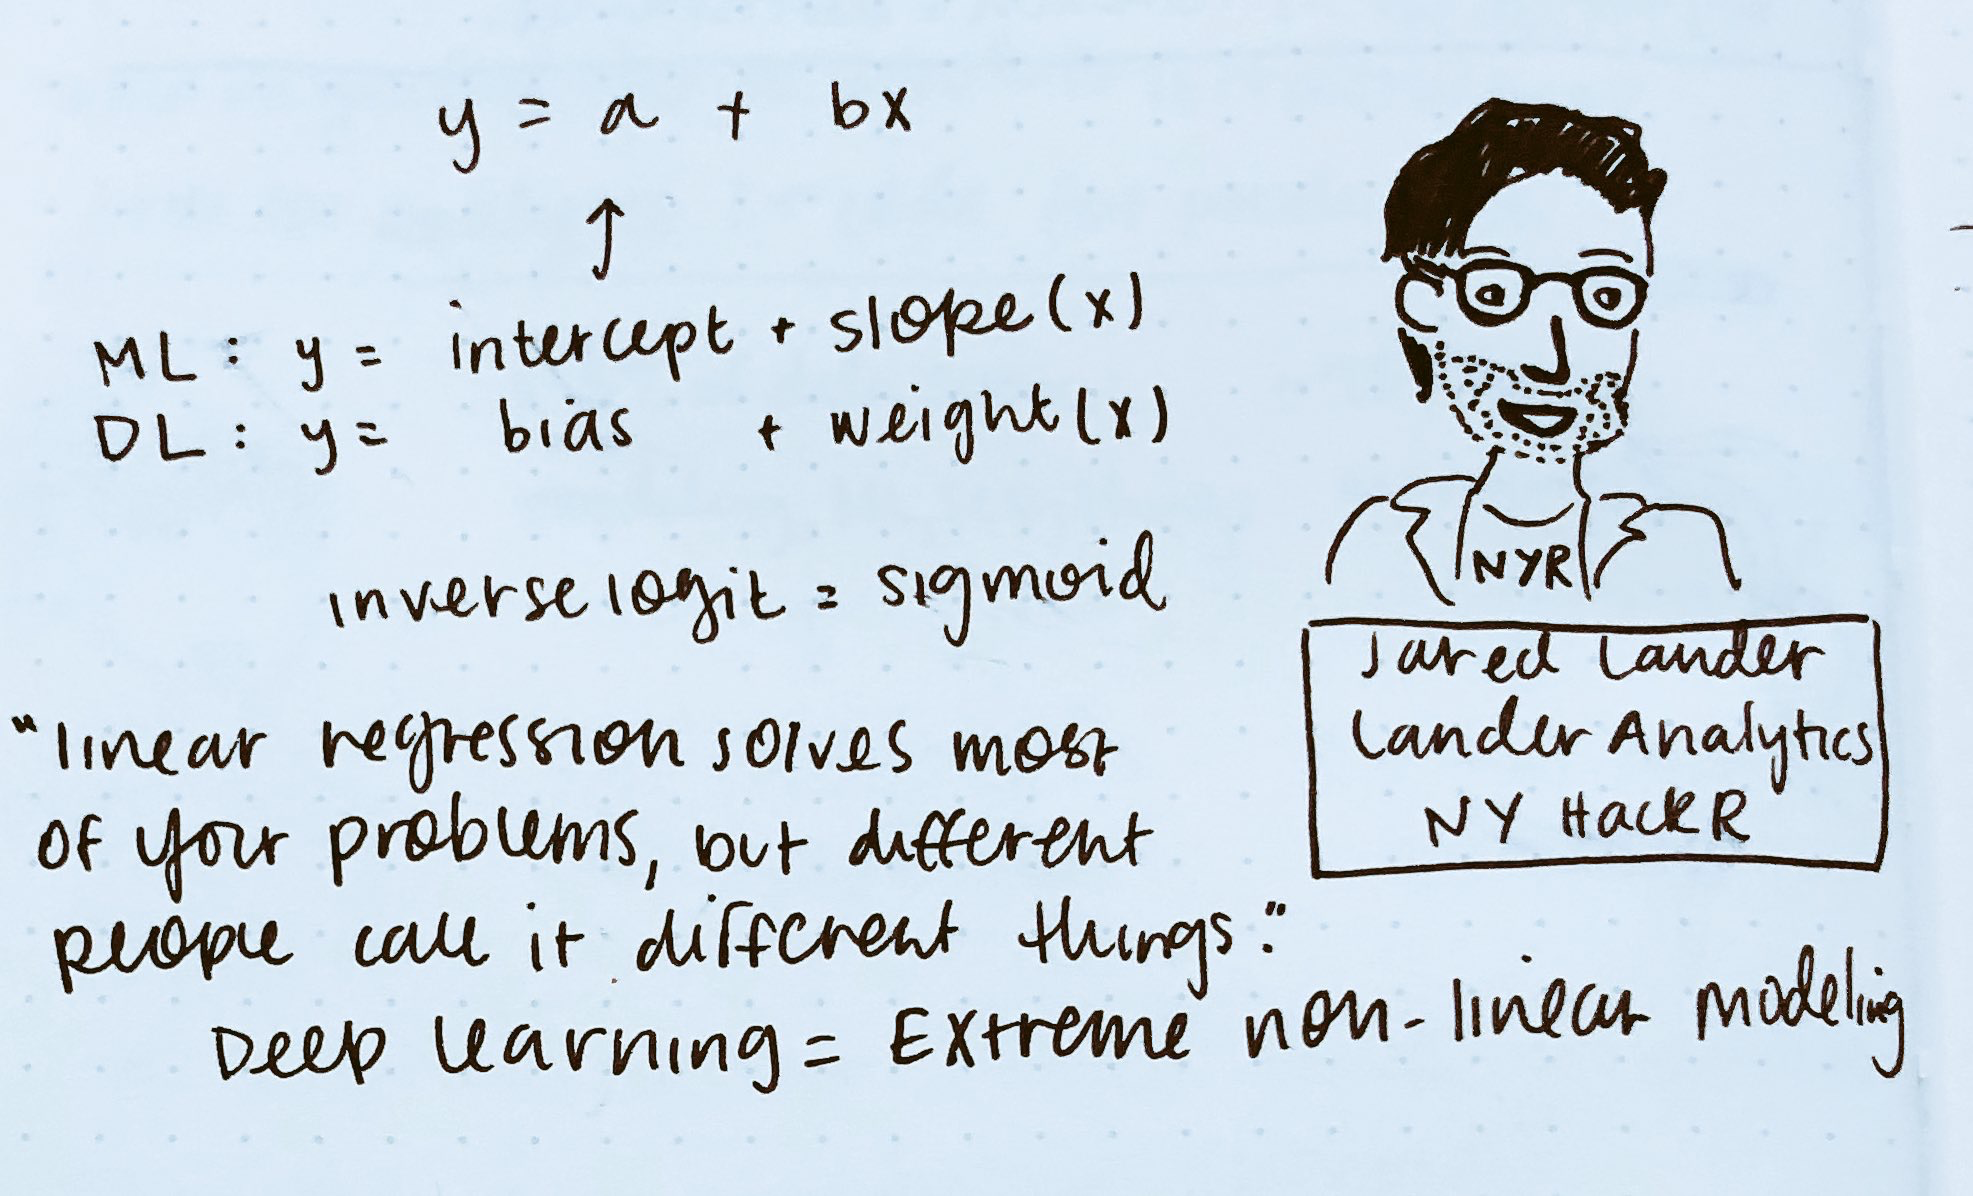 y = a + bx
↑
ML: y = intercept + slope(x)
DL: y = bias + weight(x)
inverse logit = sigmoid
"linear regression solves most
of your problems, but different
people call it different things."
Deep learning = Extreme non-linear modeling
NYR
Jared Lander
Lander Analytics
NY HackR